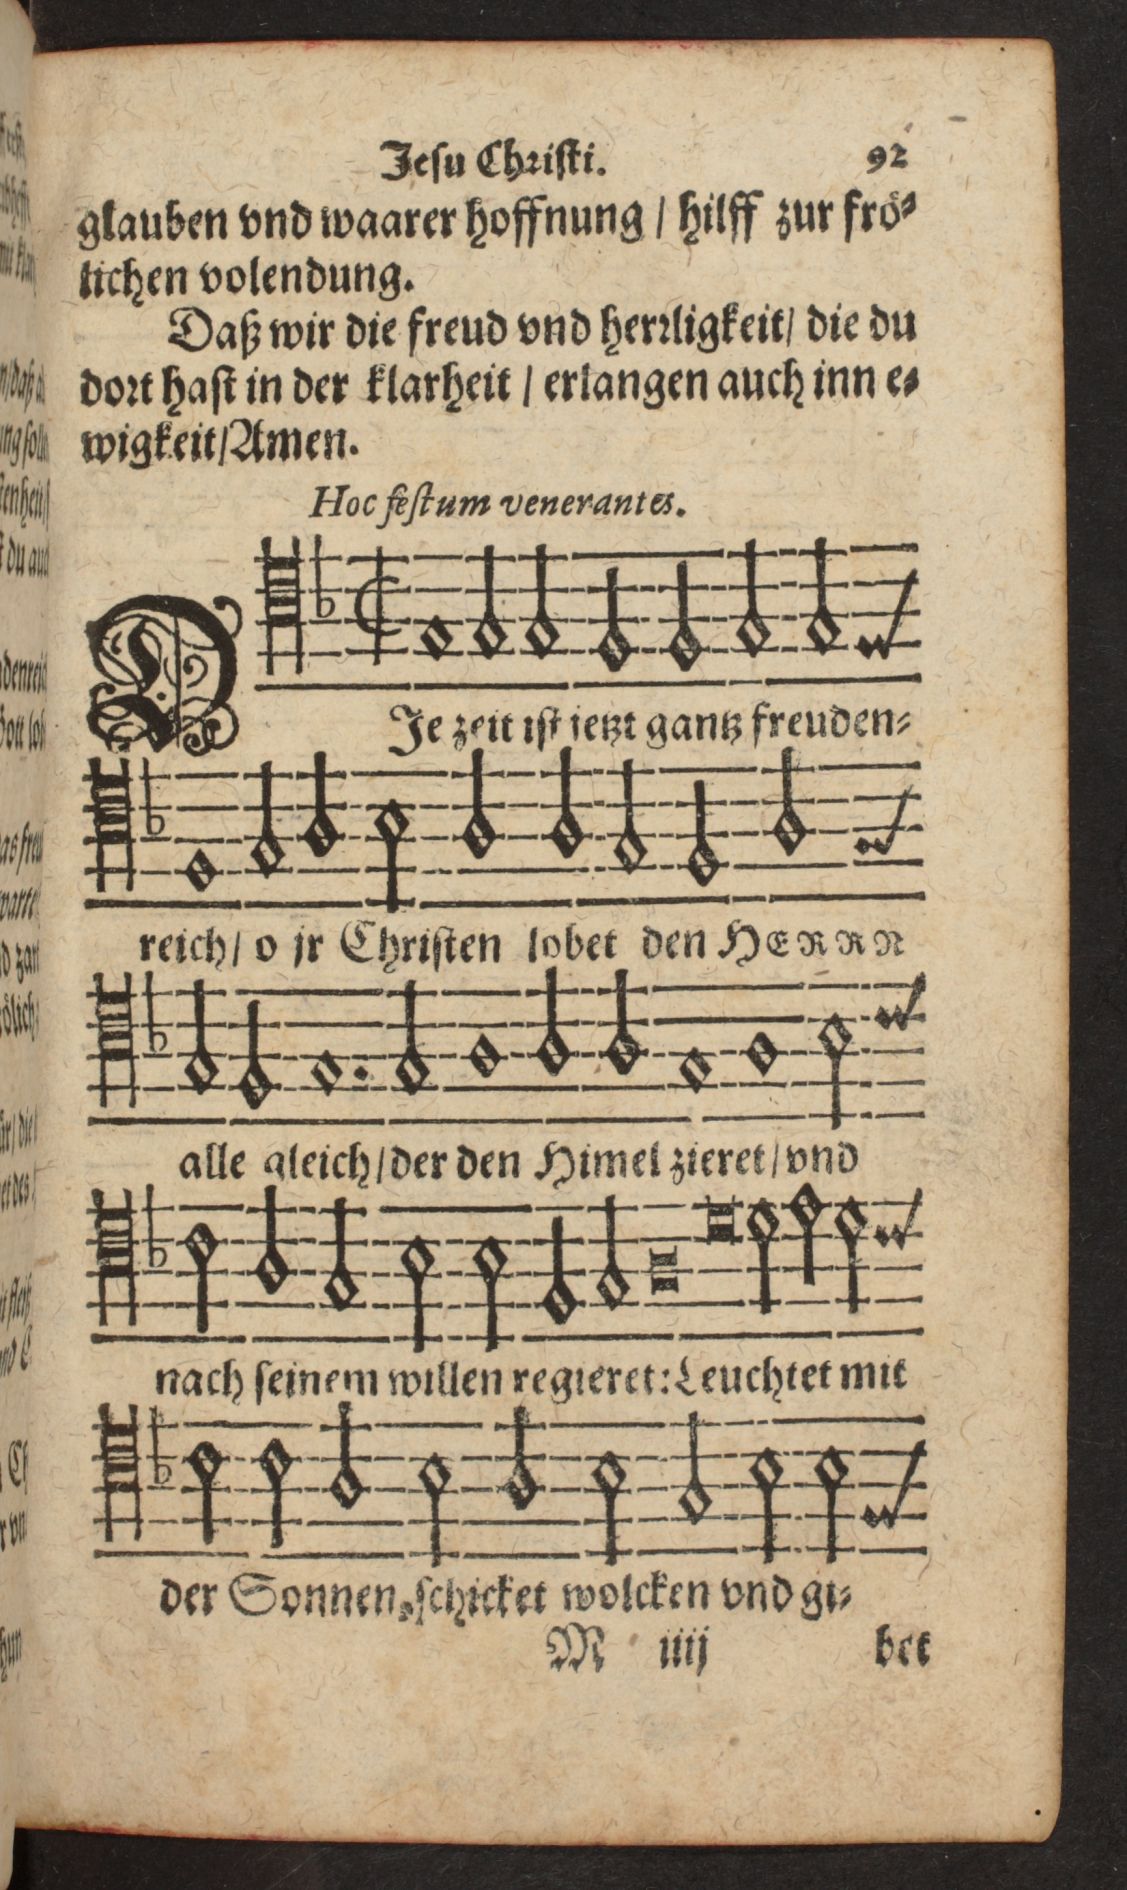 Jesu Christi. 92
glauben vnd waarer hoffnung / hilff zur frö⸗
lichen volendung.
Daß wir die freud vnd herrligkeit/ die du
dort hast in der klarheit / erlangen auch inn e⸗
wigkeit/Amen.
Hoc festum venerantes.
DJe zeit ist jetzt gantz freuden⸗
reich/ o jr Christen lobet den HERRN
alle gleich/der den Himel zieret/vnd
nach seinem willen regieret: Leuchtet mit
der Sonnen, schicket wolcken vnd gi⸗
M iiij bet